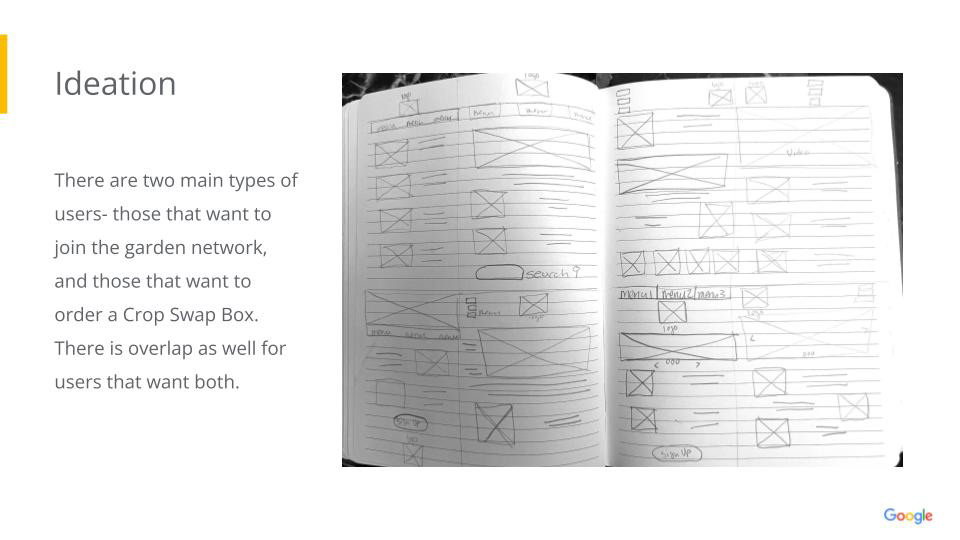 Ideation
There are two main types of
users- those that want to
join the garden network,
and those that want to
order a Crop Swap Box.
There is overlap as well for
users that want both.
logo
logo
menu menu menu
menu
menu
search
menu
logo
menu menu menu
sign up
logo
Video
menu1 menu2 menu3
logo
logo
< 000 >
<
>
000
sign up
Google